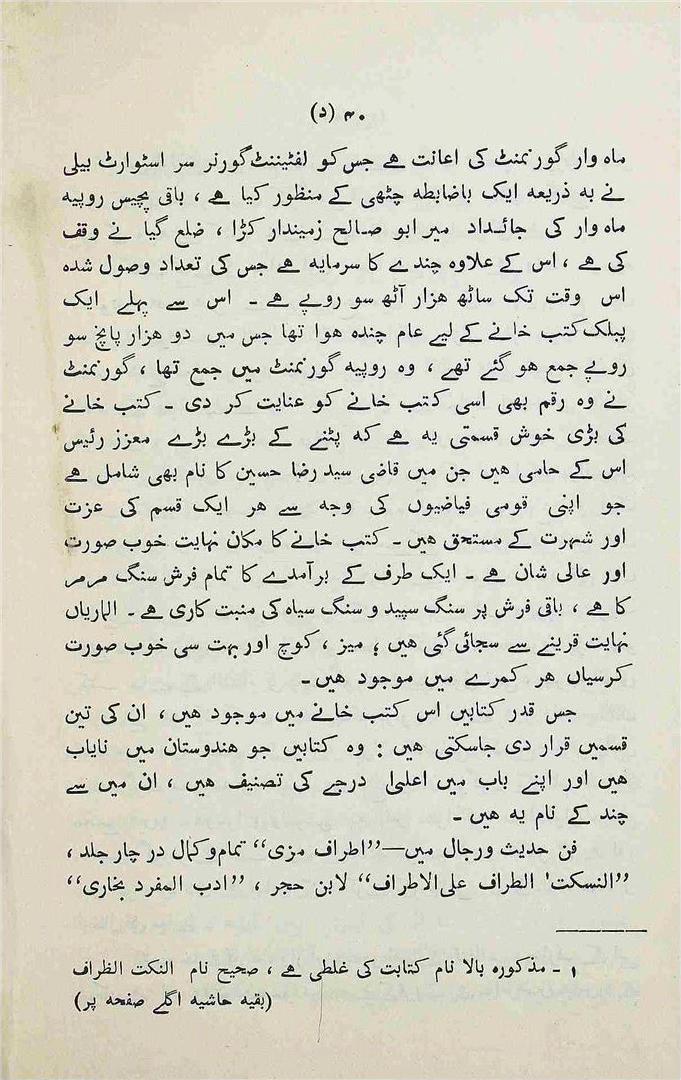 ۴۰ (د)
ماہ وار گورنمنٹ کی اعانت ہے جس کو لفٹیننٹ گورنر سر اسٹوارٹ بیلی
نے بہ ذریعہ ایک باضابطہ چٹھی کے منظور کیا ہے ، باقی پچیس روپیہ
ماہ وار کی جائداد میر ابو صالح زمیندار کڑا ، ضلع گیا نے وقف
کی ہے ، اس کے علاوہ چندے کا سرمایہ ہے جس کی تعداد وصول شدہ
اس وقت تک ساٹھ ہزار آٹھ سو روپے ہے ۔ اس سے پہلے ایک
پبلک کتب خانے کے لیے عام چندہ ہوا تھا جس میں دو ہزار پانچ سو
روپے جمع ہو گئے تھے ، وہ روپیہ گورنمنٹ میں جمع تھا ، گورنمنٹ
نے وہ رقم بھی اسی کتب خانے کو عنایت کر دی ۔ کتب خانے
کی بڑی خوش قسمتی یہ ہے کہ پٹنے کے بڑے بڑے معزز رئیس
اس کے حامی ہیں جن میں قاضی سید رضا حسین کا نام بھی شامل ہے
جو اپنی قومی فیاضیوں کی وجہ سے ہر ایک قسم کی عزت
اور شہرت کے مستحق ہیں ۔ کتب خانے کا مکان نہایت خوب صورت
اور عالی شان ہے ۔ ایک طرف کے برآمدے کا تمام فرش سنگ مرمر
کا ہے ، باقی فرش پر سنگ سپید و سنگ سیاہ کی منبت کاری ہے ۔ الماریاں
نہایت قرینے سے سجائی گئی ہیں ؛ میز ، کوچ اور بہت سی خوب صورت
کرسیاں ہر کمرے میں موجود ہیں ۔
جس قدر کتابیں اس کتب خانے میں موجود ہیں ، ان کی تین
قسمیں قرار دی جاسکتی ہیں : وہ کتابیں جو ہندوستان میں نایاب
ہیں اور اپنے باب میں اعلیٰ درجے کی تصنیف ہیں ، ان میں سے
چند کے نام یہ ہیں ۔
فن حدیث و رجال میں—”اطراف مزی“ تمام و کمال در چار جلد ،
”النسکت¹ الطراف علی الاطراف“ لابن حجر ، ”ادب المفرد بخاری“
۱ ۔ مذکورہ بالا نام کتابت کی غلطی ہے ، صحیح نام النکت الظراف
(بقیہ حاشیہ اگلے صفحہ پر)